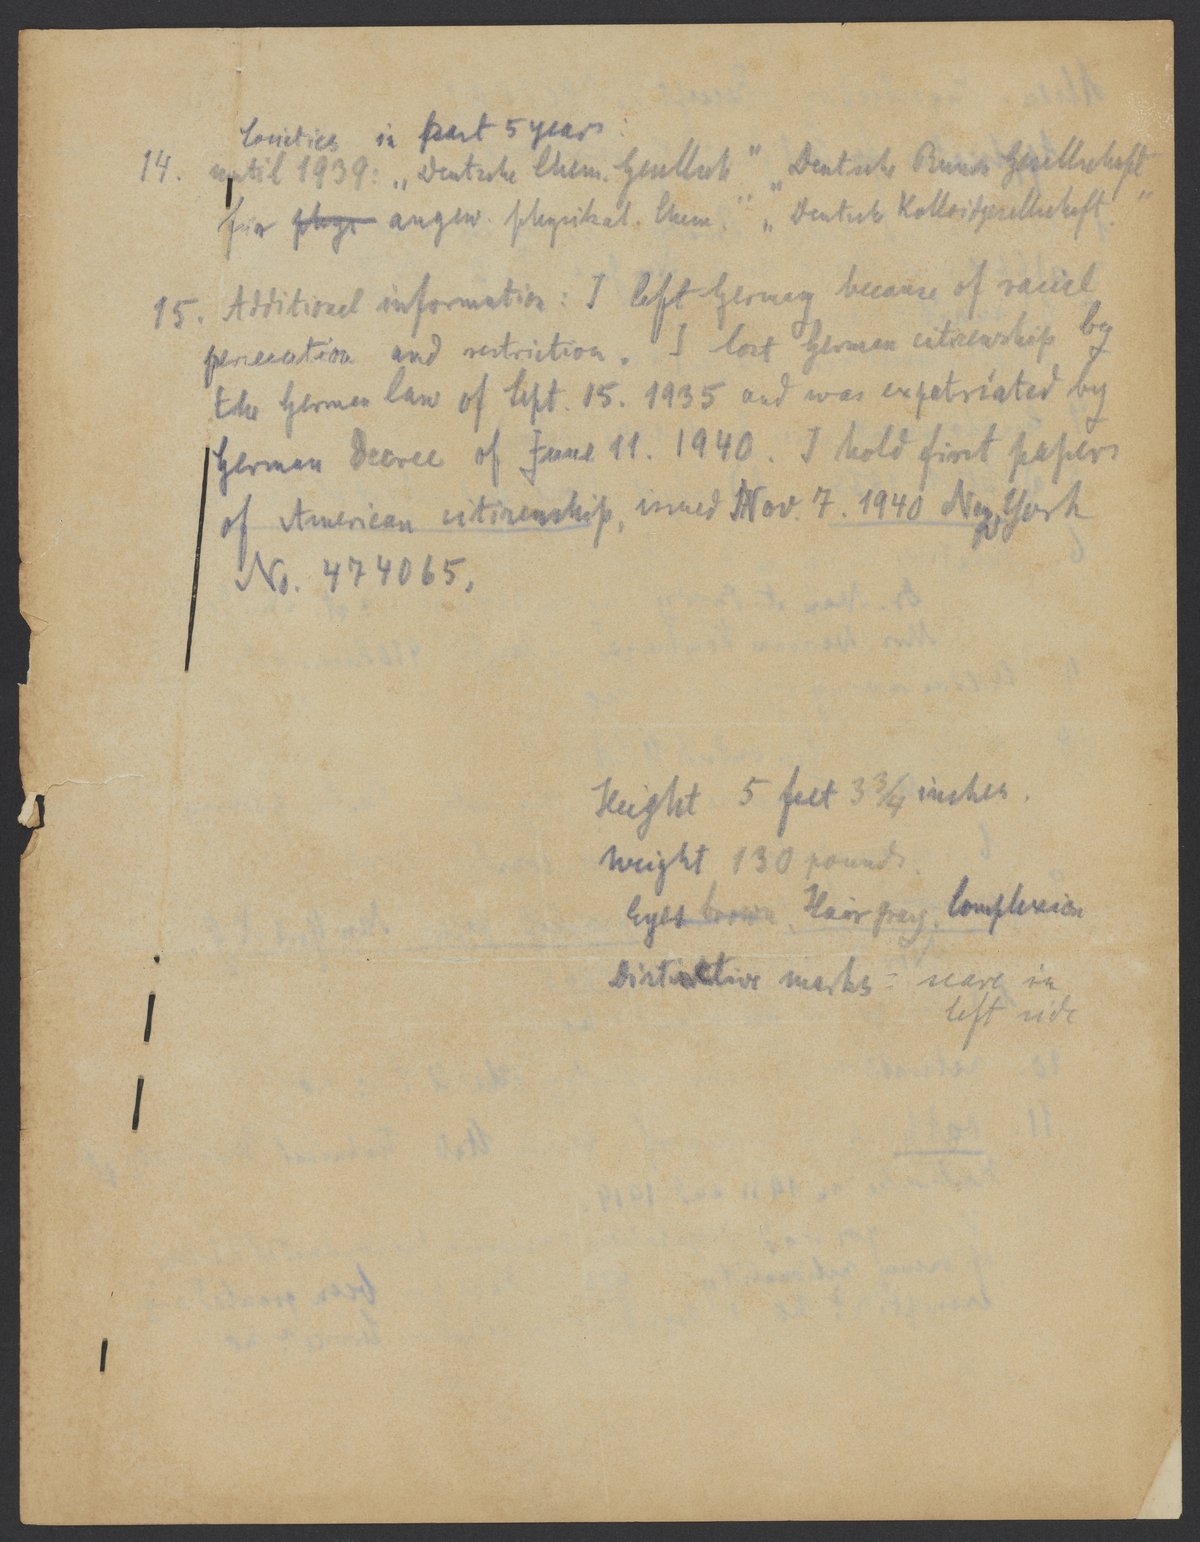 Societies in past 5 years:
14. until 1939: „Deutsche Chem. Gesellsch" „Deutsche Bunsen Gesellschaft
für phys angew. physikal. Chem." „Deutsch Kolloidgesellschaft."
15. Additional information: I left Germany because of raciel
persecution and restriction. I lost German citizenship by
the German law of Sept. 15. 1935 and was expetriated by
German Decree of June 11. 1940. I hold first papers
of American citizenship, issued Nov. 7. 1940 New York
No. 474065.
Height 5 feet 3 3/4 inches.
Weight 130 pounds.
Eyes brown, Hair gray, Complexion
Distinctive marks = scare in
left side